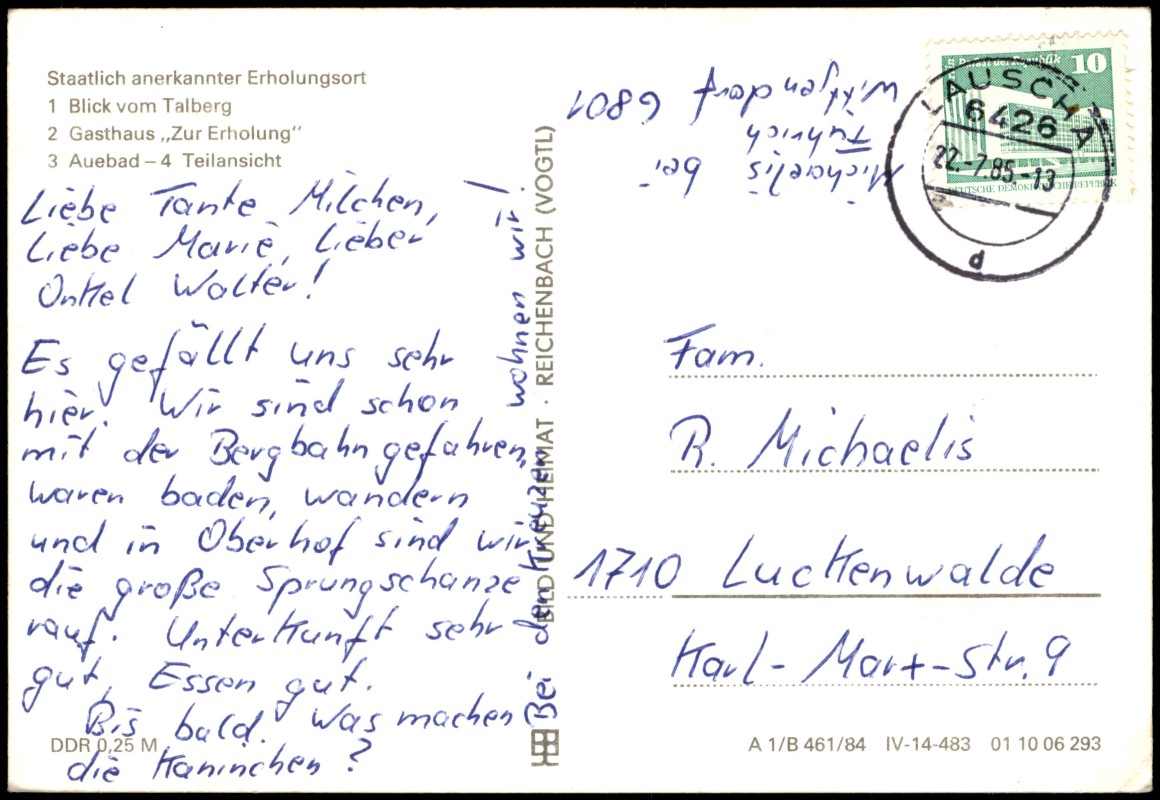 Staatlich anerkannter Erholungsort
1 Blick vom Talberg
2 Gasthaus „Zur Erholung"
3 Auebad – 4 Teilansicht
Liebe Tante Milchen,
Liebe Marie, Lieber
Onkel Walter!
Es gefällt uns sehr
hier. Wir sind schon
mit der Bergbahn gefahren,
waren baden, wandern
und in Oberhof sind wir
die große Sprungschanze
rauf. Unterkunft sehr
gut, Essen gut.
Bis bald. Was machen
die Kaninchen?
DDR 0,25 M
Bei den Kreuzen wohnen wir
BILD UND HEIMAT · REICHENBACH (VOGTL)
Michaelis bei
Führich
Wittgendorf 6801
10
Palast der Republik
DEUTSCHE DEMOKRATISCHE REPUBLIK
LAUSCHA
6426
22.-7.85.-13
d
Fam.
R. Michaelis
1710 Luckenwalde
Karl-Marx-Str. 9
A 1/B 461/84 IV-14-483 01 10 06 293